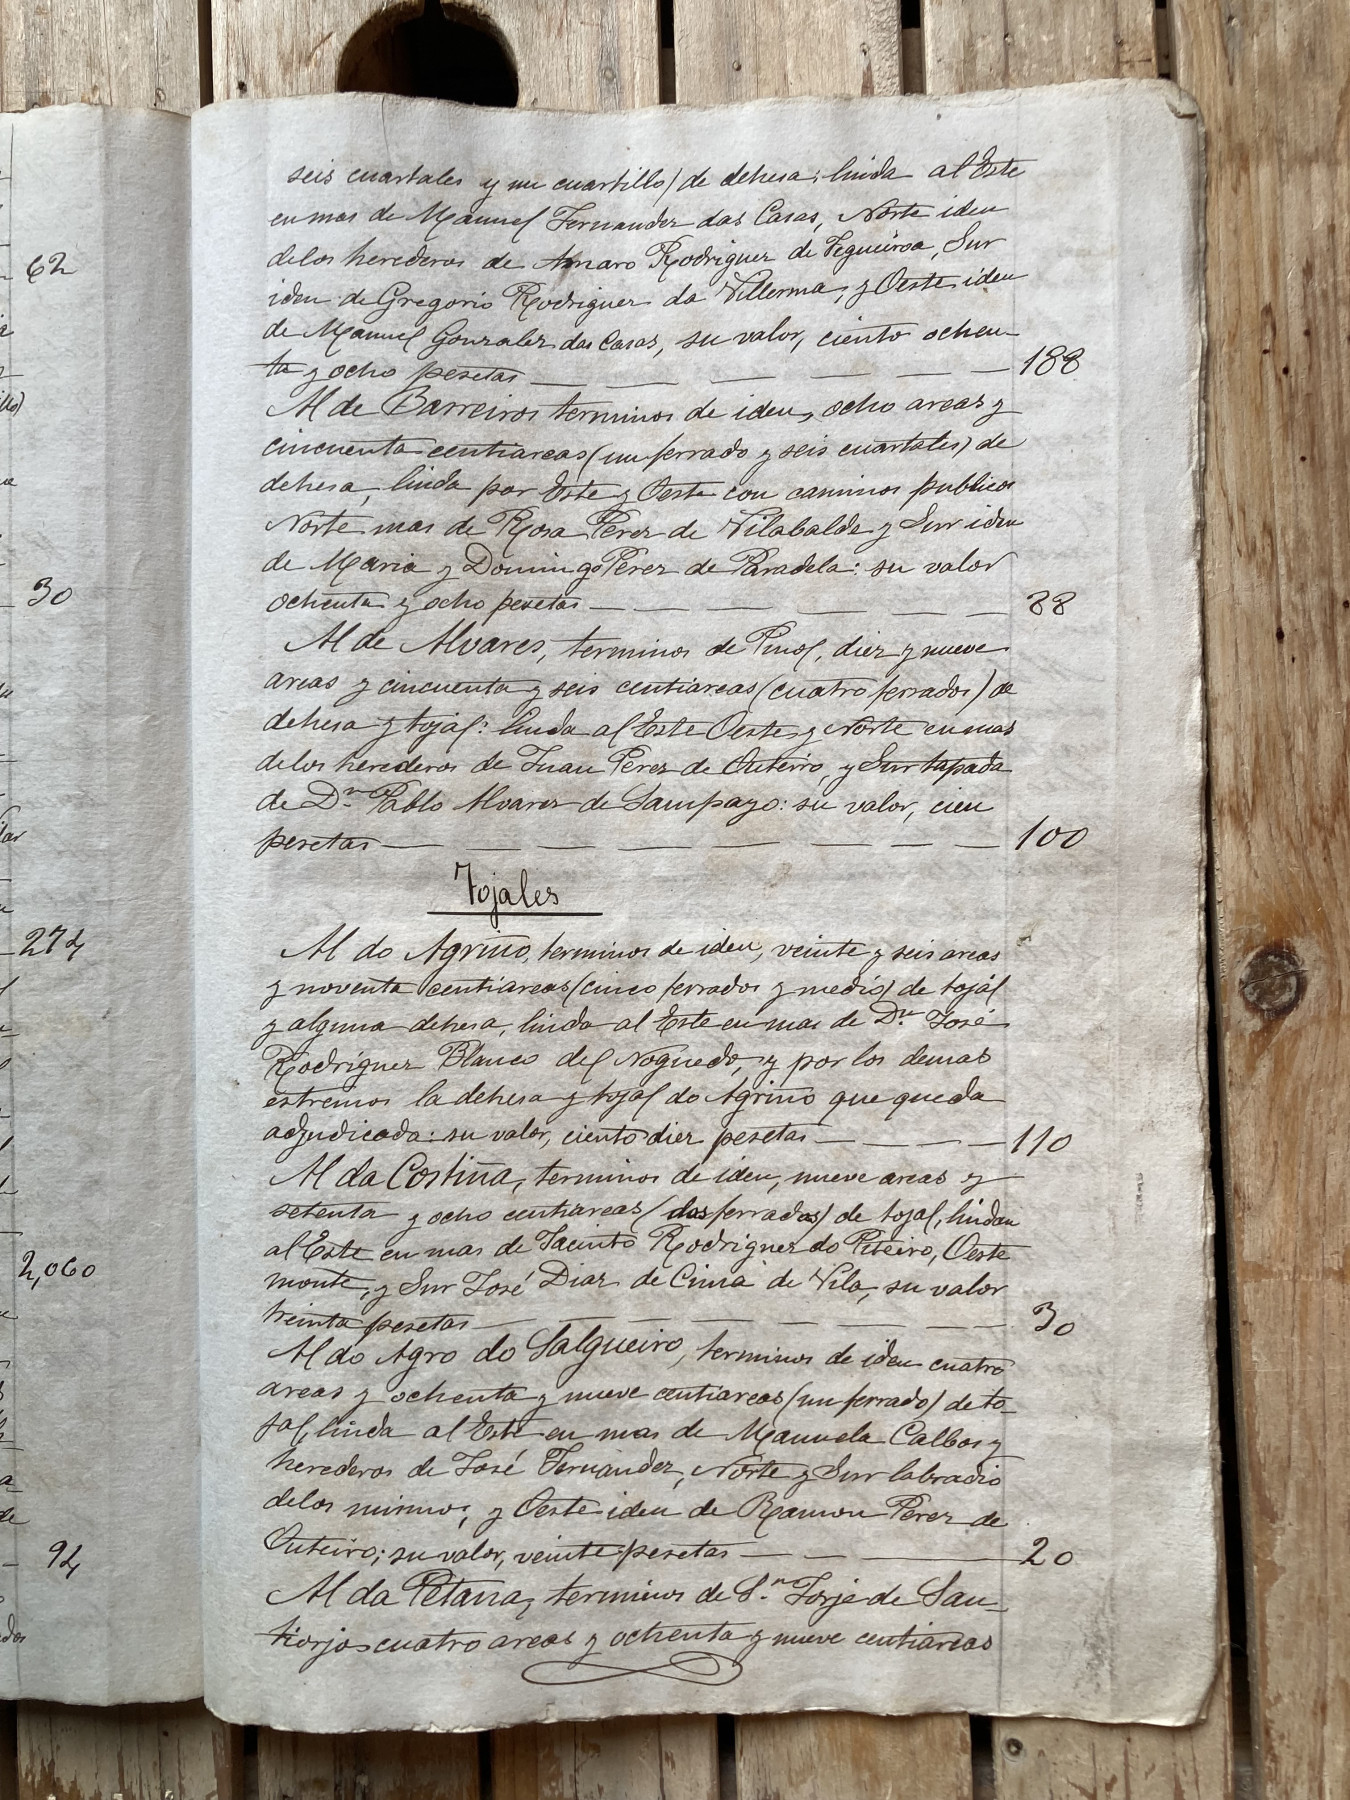 seis cuartales y un cuartillo) de dehesa; linda al Este
en mas de Manuel Fernandez das Casas, Norte iden
delos herederos de Amaro Rodriguez de Fegueiroa, Sur
iden de Gregorio Rodriguez da Villerma, y Oeste iden
de Manuel Gonzalez das Casas, su valor, ciento ochen-
ta y ocho pesetas 188
Al de Barreiros terminos de iden, ocho areas y
cincuenta centiareas (un ferrado y seis cuartales) de
dehesa, linda por Este y Oeste con caminos publicos
Norte mas de Rosa Perez de Vilabalde y Sur iden
de Maria y Domingo Perez de Paradela: su valor
ochenta y ocho pesetas 88
Al de Alvares, terminos de Pinol, diez y nueve
areas y cincuenta y seis centiareas (cuatro ferrados) de
dehesa y tojal: linda al Este Oeste y Norte en mas
delos herederos de Juan Perez de Outeiro, y Sur tapada
de Dn. Pablo Alvarez de Sampayo: su valor, cien
pesetas 100
Tojales
Al do Agriño, terminos de iden, veinte y seis areas
y noventa centiareas (cinco ferrados y medio) de tojal
y alguna dehesa, linda al Este en mas de Dn. José
Rodriguez Blanco del Noguedo, y por los demas
estremos la dehesa y tojal do Agriño que queda
adjudicada: su valor, ciento diez pesetas 110
Al da Costiña, terminos de iden, nueve areas y
setenta y ocho centiareas (dos ferrados) de tojal, lindan
al Este en mas de Jacinto Rodriguez do Piteiro, Oeste
monte, y Sur José Diaz de Cima de Vila, su valor
treinta pesetas 30
Al do Agro do Salgueiro, terminos de iden cuatro
areas y ochenta y nueve centiareas (un ferrado) de to-
jal, linda al Este en mas de Manuela Calbos y
herederos de José Fernandez, Norte y Sur labradio
delos mismos, y Oeste iden de Ramon Perez de
Outeiro; su valor, veinte pesetas 20
Al da Petana, terminos de Sn. Jorje de San-
tiorjo cuatro areas y ochenta y nueve centiareas
62
30
274
2,060
94